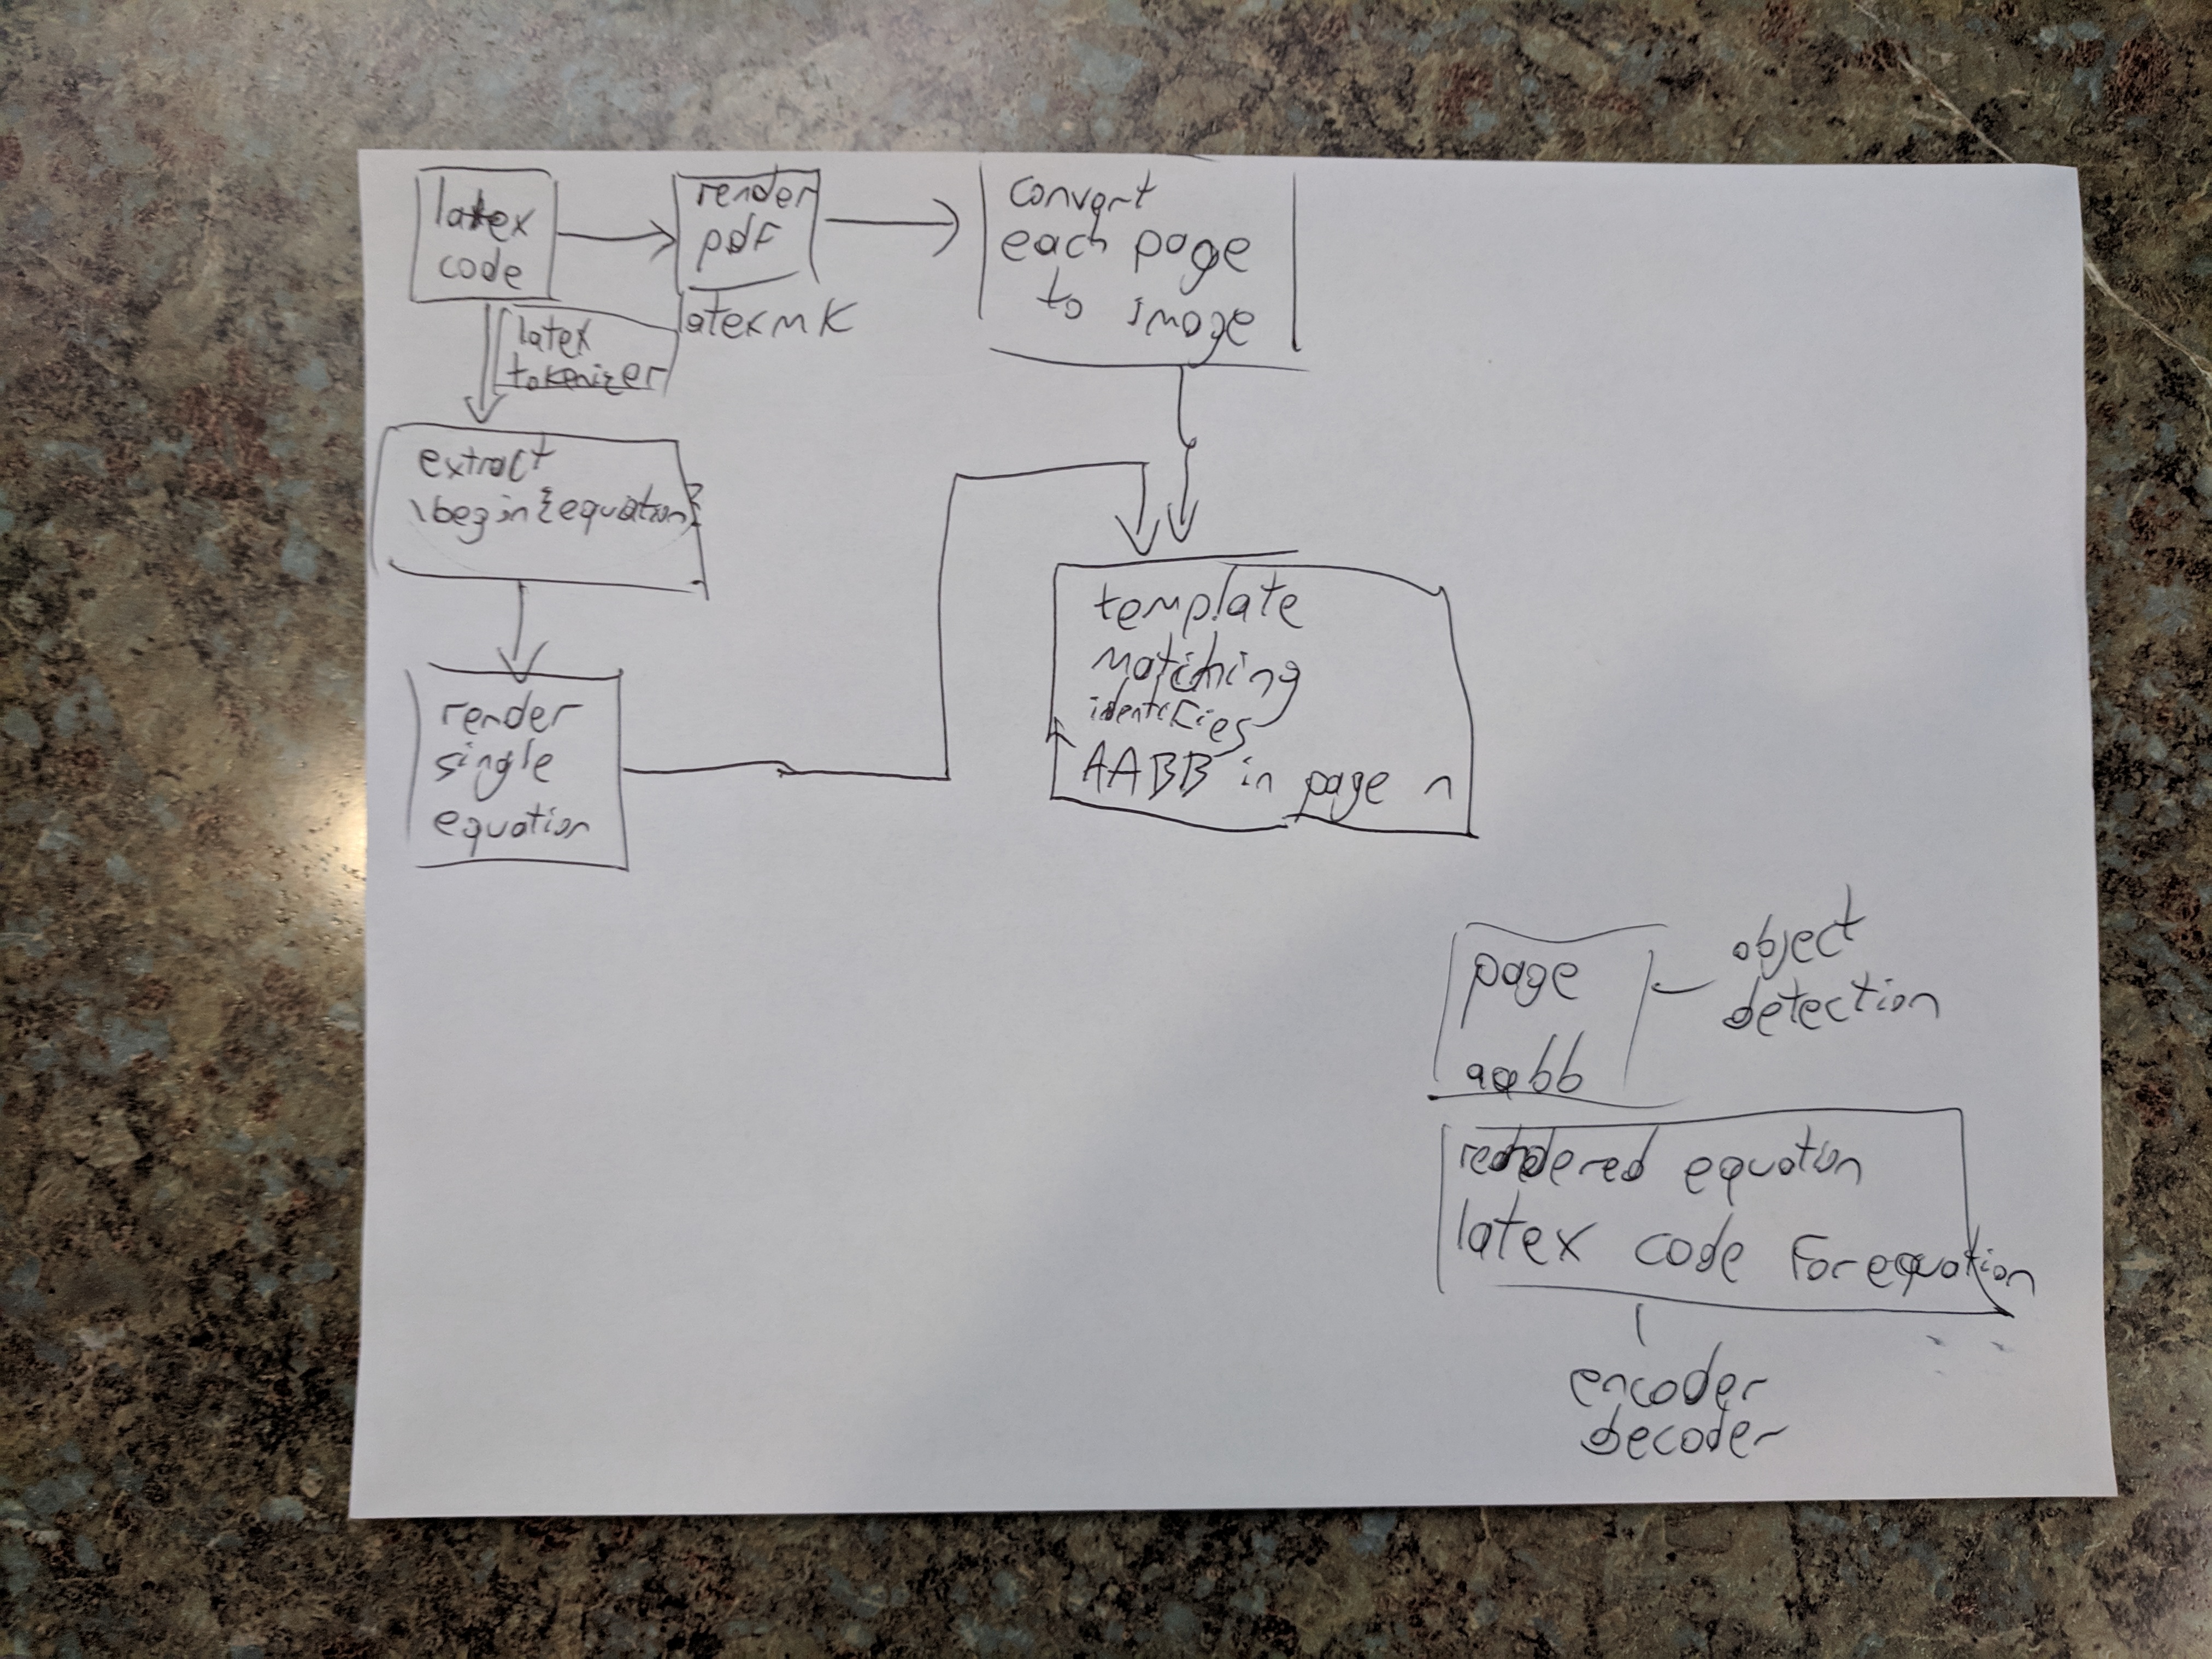 latex
code
render
pdf
latexmk
convert
each page
to image
latex
tokenizer
extract
\begin{equation}
render
single
equation
template
matching
identifies
AABB in page n
page
aabb
object
detection
rendered equation
latex code for equation
encoder
decoder